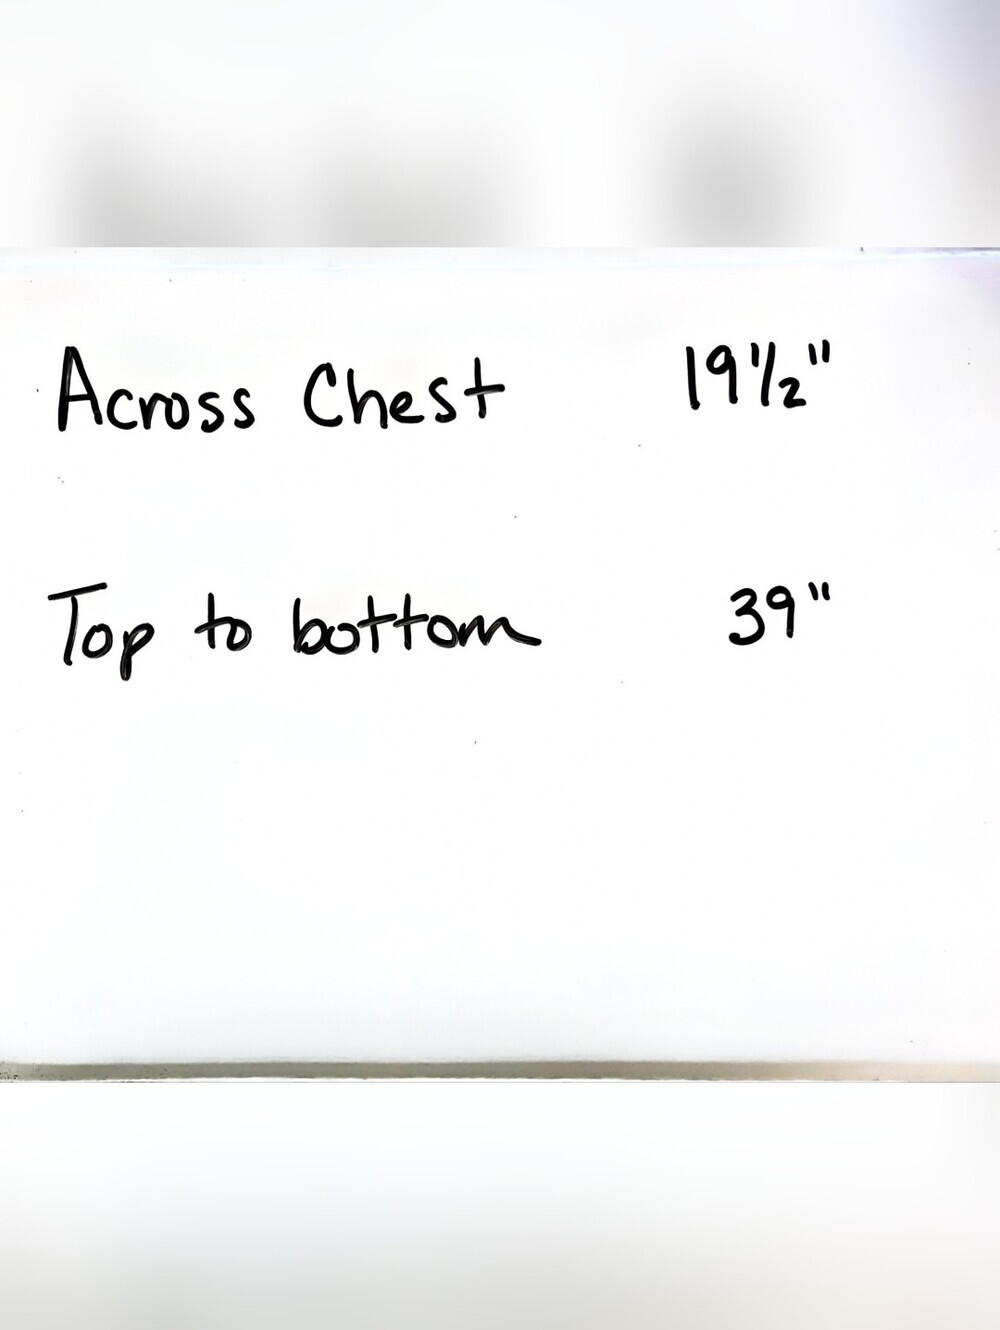 Across Chest 19 1/2"
Top to bottom 39"